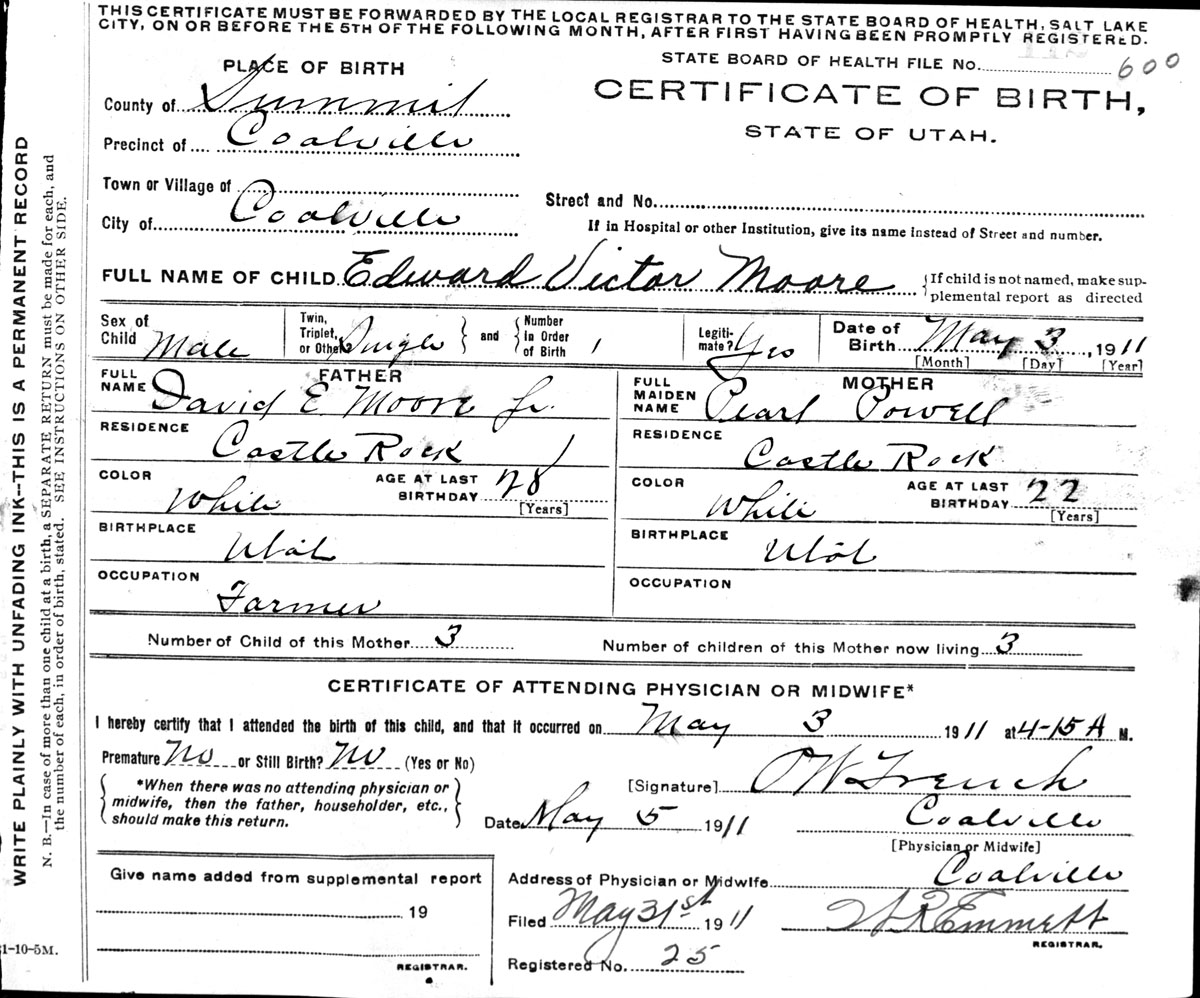 THIS CERTIFICATE MUST BE FORWARDED BY THE LOCAL REGISTRAR TO THE STATE BOARD OF HEALTH, SALT LAKE
CITY, ON OR BEFORE THE 5TH OF THE FOLLOWING MONTH, AFTER FIRST HAVING BEEN PROMPTLY REGISTERED.
STATE BOARD OF HEALTH FILE NO. 600
PLACE OF BIRTH
CERTIFICATE OF BIRTH,
STATE OF UTAH.
County of Summit
Precinct of Coalville
Town or Village of
Street and No.
City of Coalville
If in Hospital or other Institution, give its name instead of Street and number.
FULL NAME OF CHILD Edward Victor Moore {If child is not named, make sup-
plemental report as directed
Sex of Child Male
Twin, Triplet, or Other Single } and { Number In Order of Birth 1
Legiti-mate? Yes
Date of Birth May 3, 1911
[Month] [Day] [Year]
FATHER
FULL NAME David E. Moore Jr.
MOTHER
FULL MAIDEN NAME Pearl Powell
RESIDENCE Castle Rock
RESIDENCE Castle Rock
COLOR White AGE AT LAST BIRTHDAY 28 [Years]
COLOR White AGE AT LAST BIRTHDAY 22 [Years]
BIRTHPLACE Utah
BIRTHPLACE Utah
OCCUPATION Farmer
OCCUPATION
Number of Child of this Mother 3 Number of children of this Mother now living 3
CERTIFICATE OF ATTENDING PHYSICIAN OR MIDWIFE*
I hereby certify that I attended the birth of this child, and that it occurred on May 3 1911 at 4-15 A M.
Premature No or Still Birth? No (Yes or No)
*When there was no attending physician or
midwife, then the father, householder, etc.,
should make this return.
[Signature] O W French
Date May 5 1911 Coalville
[Physician or Midwife]
Give name added from supplemental report
19
REGISTRAR.
Address of Physician or Midwife Coalville
Filed May 31st 1911 Emmett
REGISTRAR.
Registered No. 25
WRITE PLAINLY WITH UNFADING INK--THIS IS A PERMANENT RECORD
N. B.—In case of more than one child at a birth, a SEPARATE RETURN must be made for each, and
the number of each, in order of birth, stated. SEE INSTRUCTIONS ON OTHER SIDE.
1-10-5M.